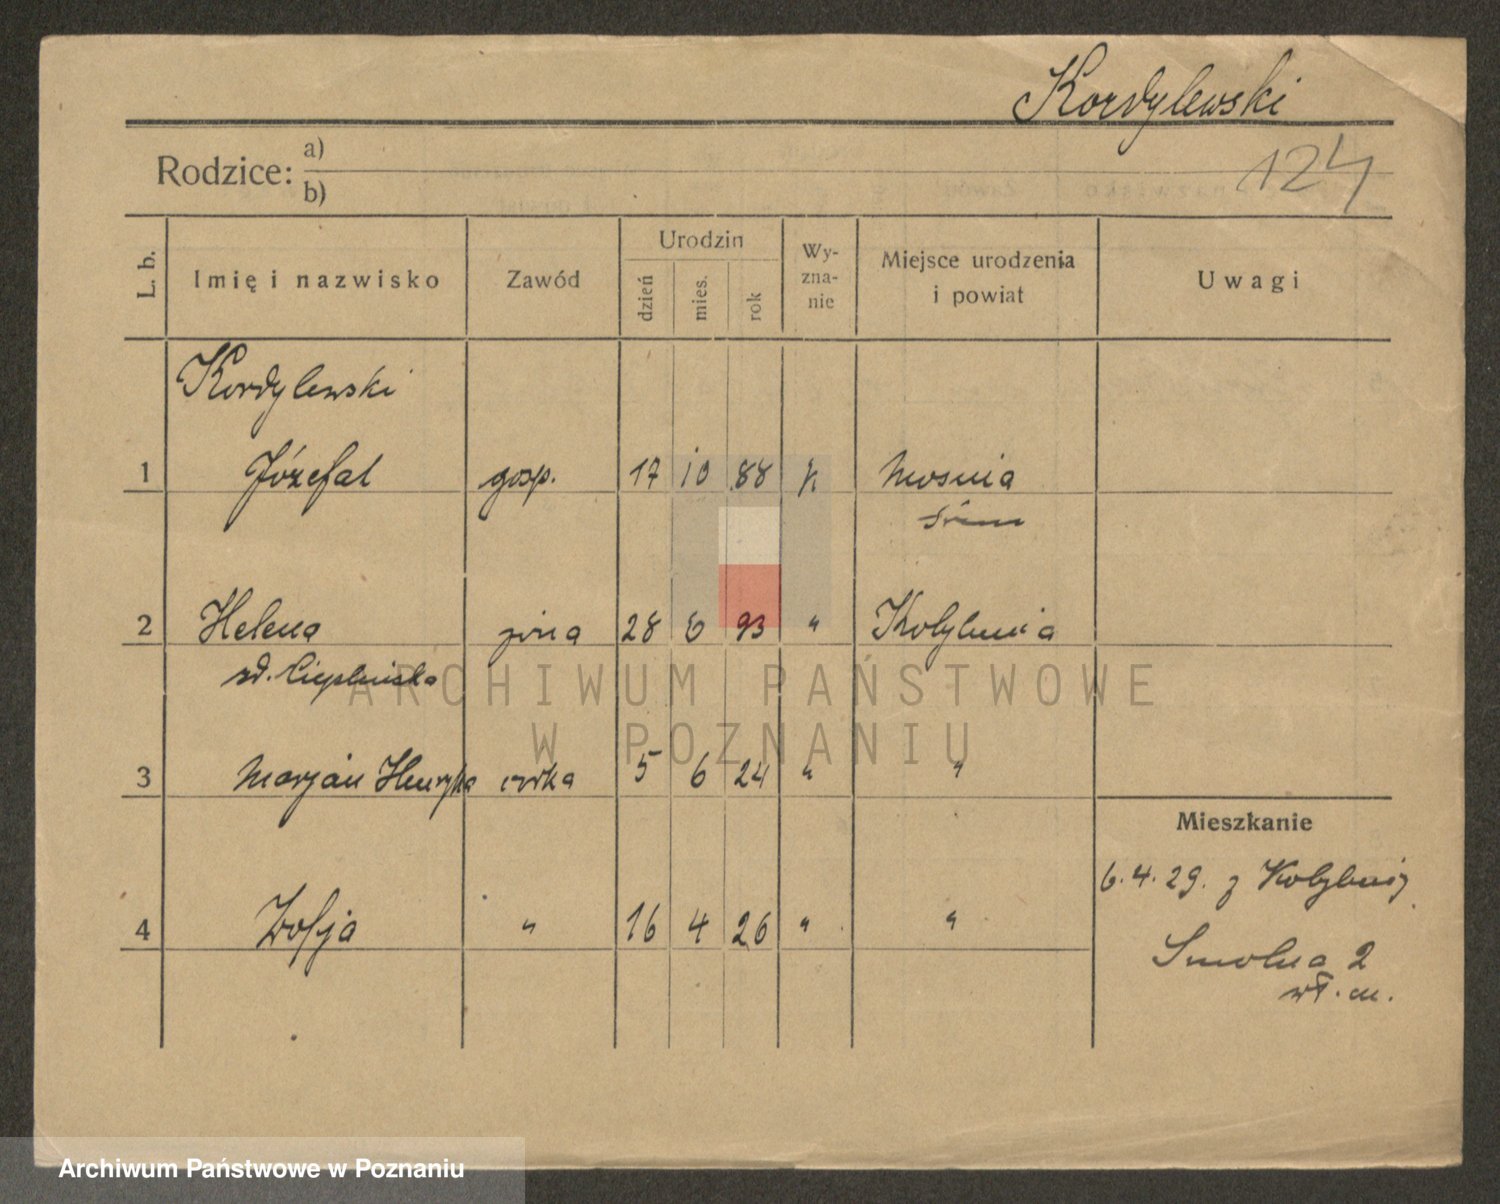 Kordylewski
124
Rodzice: a)
b)
L. b.
Imię i nazwisko
Zawód
Urodzin
dzień
mies.
rok
Wy-
zna-
nie
Miejsce urodzenia
i powiat
Uwagi
Kordylewski
1 Józefat gosp. 17 10 88 k Mosina
Śrem
2 Helena żona 28 6 93 " Kobylnia
zd.
3 Marjan Henryka córka 5 6 24 " "
4 Zofja " 16 4 26 " "
Mieszkanie
6.4.29. z
Smolna 2
wł. m.
ARCHIWUM PAŃSTWOWE
W POZNANIU
Archiwum Państwowe w Poznaniu